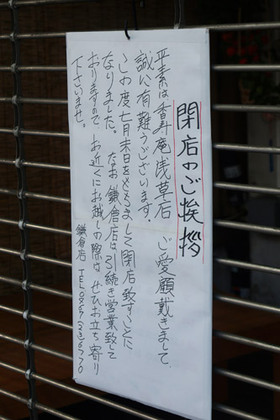 閉店のご挨拶
平素は香寿庵浅草店 ご愛顧戴きまして
誠に有難うございます。
この度七月末日をもちまして閉店致すことに
なりました。 なお鎌倉店は引続き営業致して
おりますので お近くにお越しの際は ぜひお立ち寄り
下さいませ。
鎌倉店 TEL